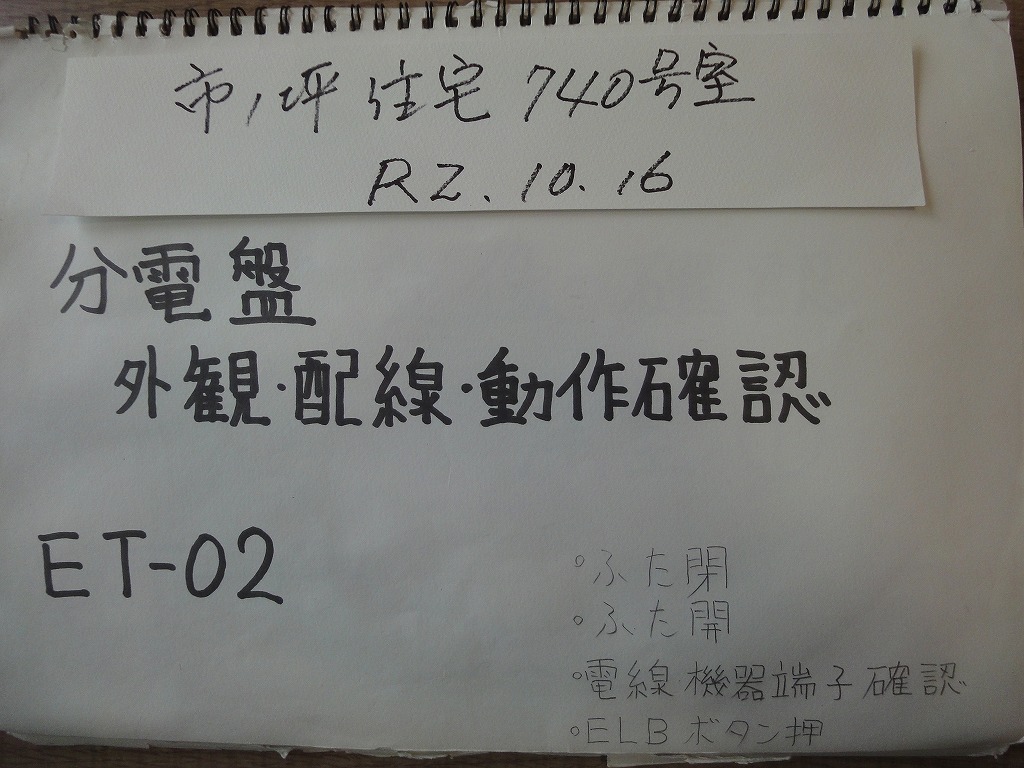 市ノ坪住宅 740号室
R2.10.16
分電盤
外観・配線・動作確認
ET-02
○ふた閉
○ふた開
○電線・機器端子確認
○ELBボタン押